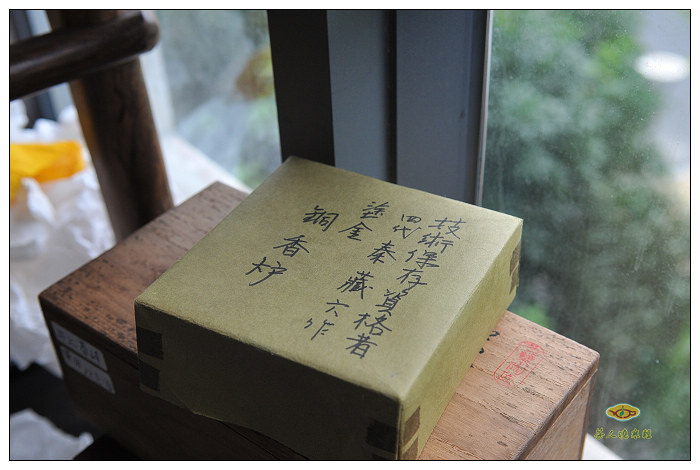 技術保存資格者
四代 秦 藏六作
塗金
銅香炉